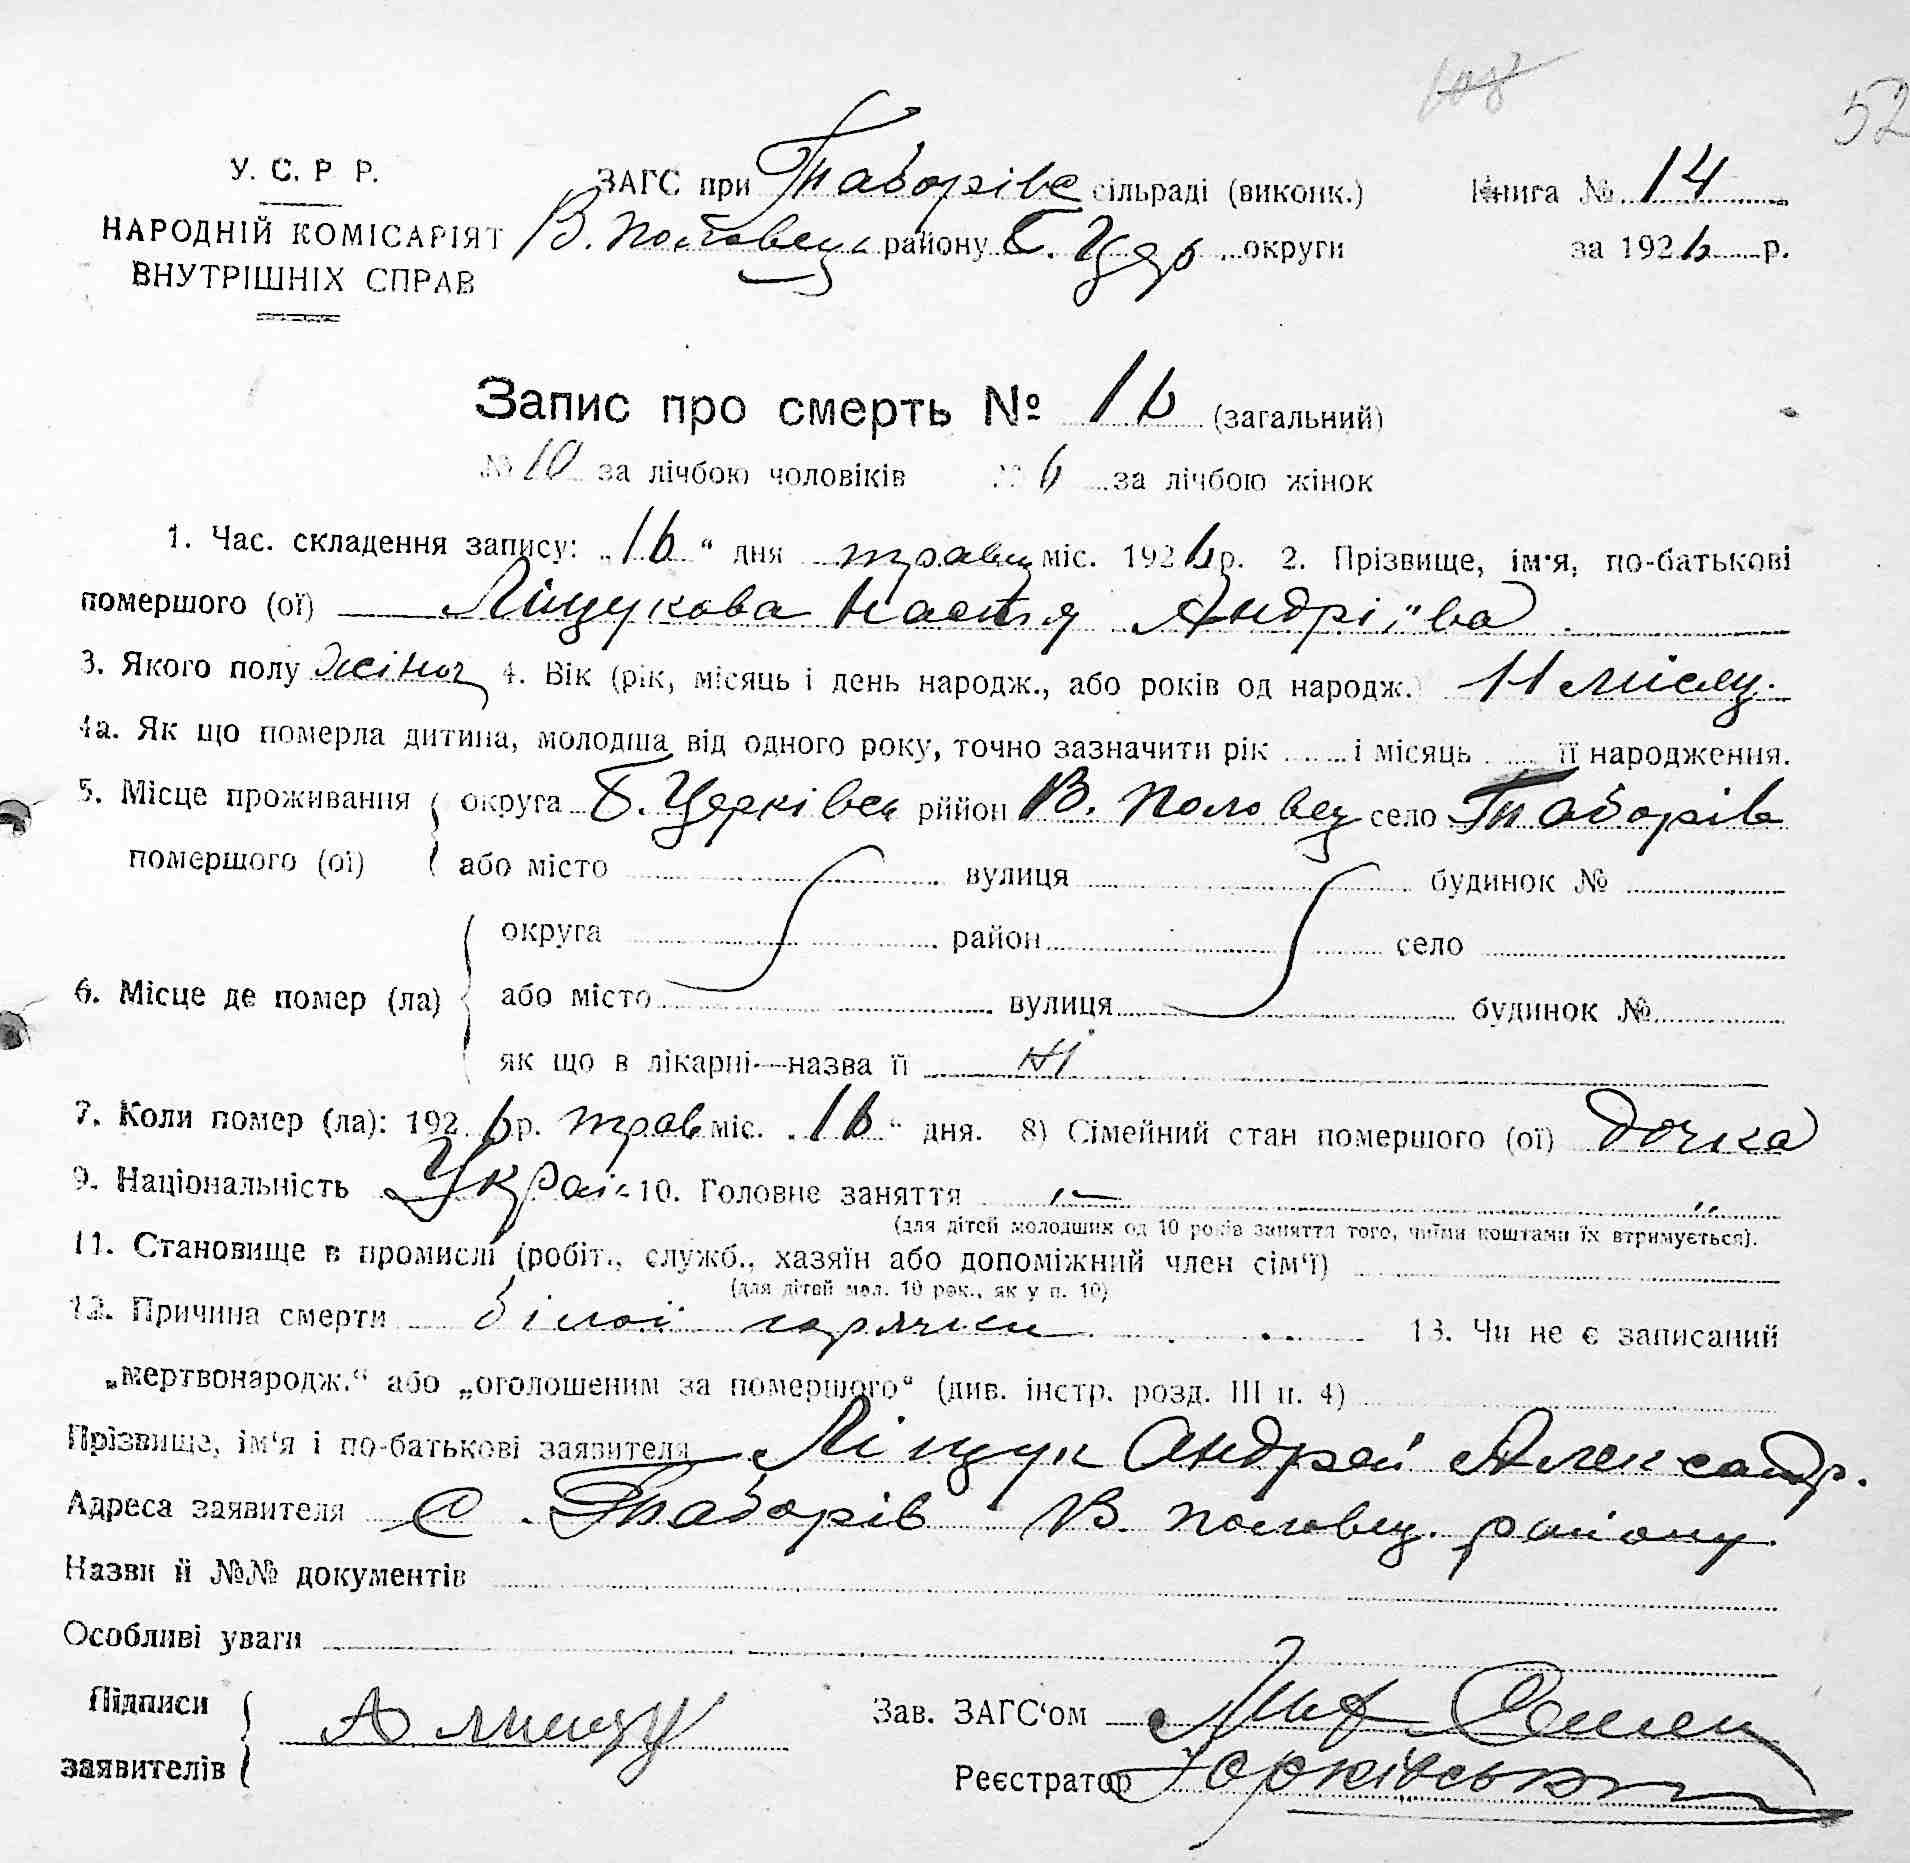 52
У. С. Р Р.
НАРОДНІЙ КОМІСАРІЯТ
ВНУТРІШНІХ СПРАВ
ЗАГС при Таборівс сільраді (виконк.)
В. Половец. району Б. Церк. округи
Книга № 14
за 1926 р.
Запис про смерть № 16 (загальний)
№ 10 за лічбою чоловіків № 6 за лічбою жінок
1. Час. складення запису: „16“ дня травц міс. 1926 р. 2. Прізвище, ім'я, по-батькові
помершого (ої) Ліщукова Настя Андріїва
3. Якого полу жіноч 4. Вік (рік, місяць і день народж., або років од народж.) 11 місяц.
4а. Як що померла дитина, молодша від одного року, точно зазначити рік і місяць її народження.
5. Місце проживання помершого (ої) округа Б. Церківск рййон В. Половец село Таборів
або місто вулиця будинок №
6. Місце де помер (ла) округа район село
або місто вулиця будинок №
як що в лікарні—назва її
7. Коли помер (ла): 1926 р. трав міс. „16“ дня. 8) Сімейний стан помершого (ої) дочка
9. Національність Украін 10. Головне заняття
(для дітей молодших од 10 років заняття того, чиїми коштами їх втримується).
11. Становище в промислі (робіт., служб., хазяїн або допоміжний член сім'ї)
(для дітей мол. 10 рок., як у п. 10)
12. Причина смерти білої горячки 13. Чи не є записаний
„мертвонародж.“ або „оголошеним за помершого“ (див. інстр. розд. III п. 4)
Прізвище, ім'я і по-батькові заявителя Ліщук Андрей Александр.
Адреса заявителя с. Таборів В. Половец. району
Назви й №№ документів
Особливі уваги
Підписи заявителів А Лищук
Зав. ЗАГС'ом
Реєстратор